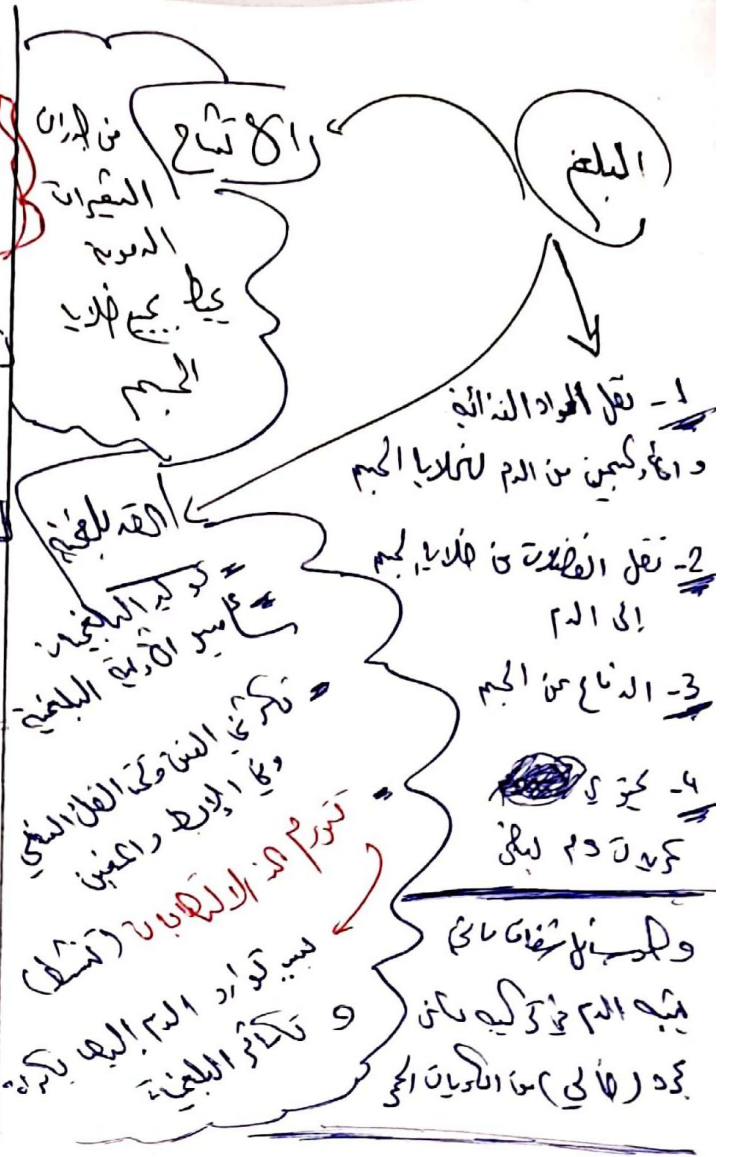 البلغم
الانتاج
من جدران
الشعيرات
الدموية
يحيط بجميع خلايا
الجسم
1- نقل المواد الغذائية
و الأوكسجين من الدم لخلايا الجسم
2- نقل الفضلات من خلايا الجسم
إلى الدم
3- الدفاع عن الجسم
4- يحتوي
كريات دم بيضاء
وهو سائل شفاف مائي
يشبه الدم في تركيبه
مجرد (خالي) من الكريات الحمر
العقد بلغمية
توليد البلغميات
تأمين الأوعية البلغمية
تكثر في العنق وتحت الفك السفلي
الإبط و
تتورم عند الالتهابات (تنشط)
بسبب توارد الدم إليها بكثرة
و تكاثر البلغمية